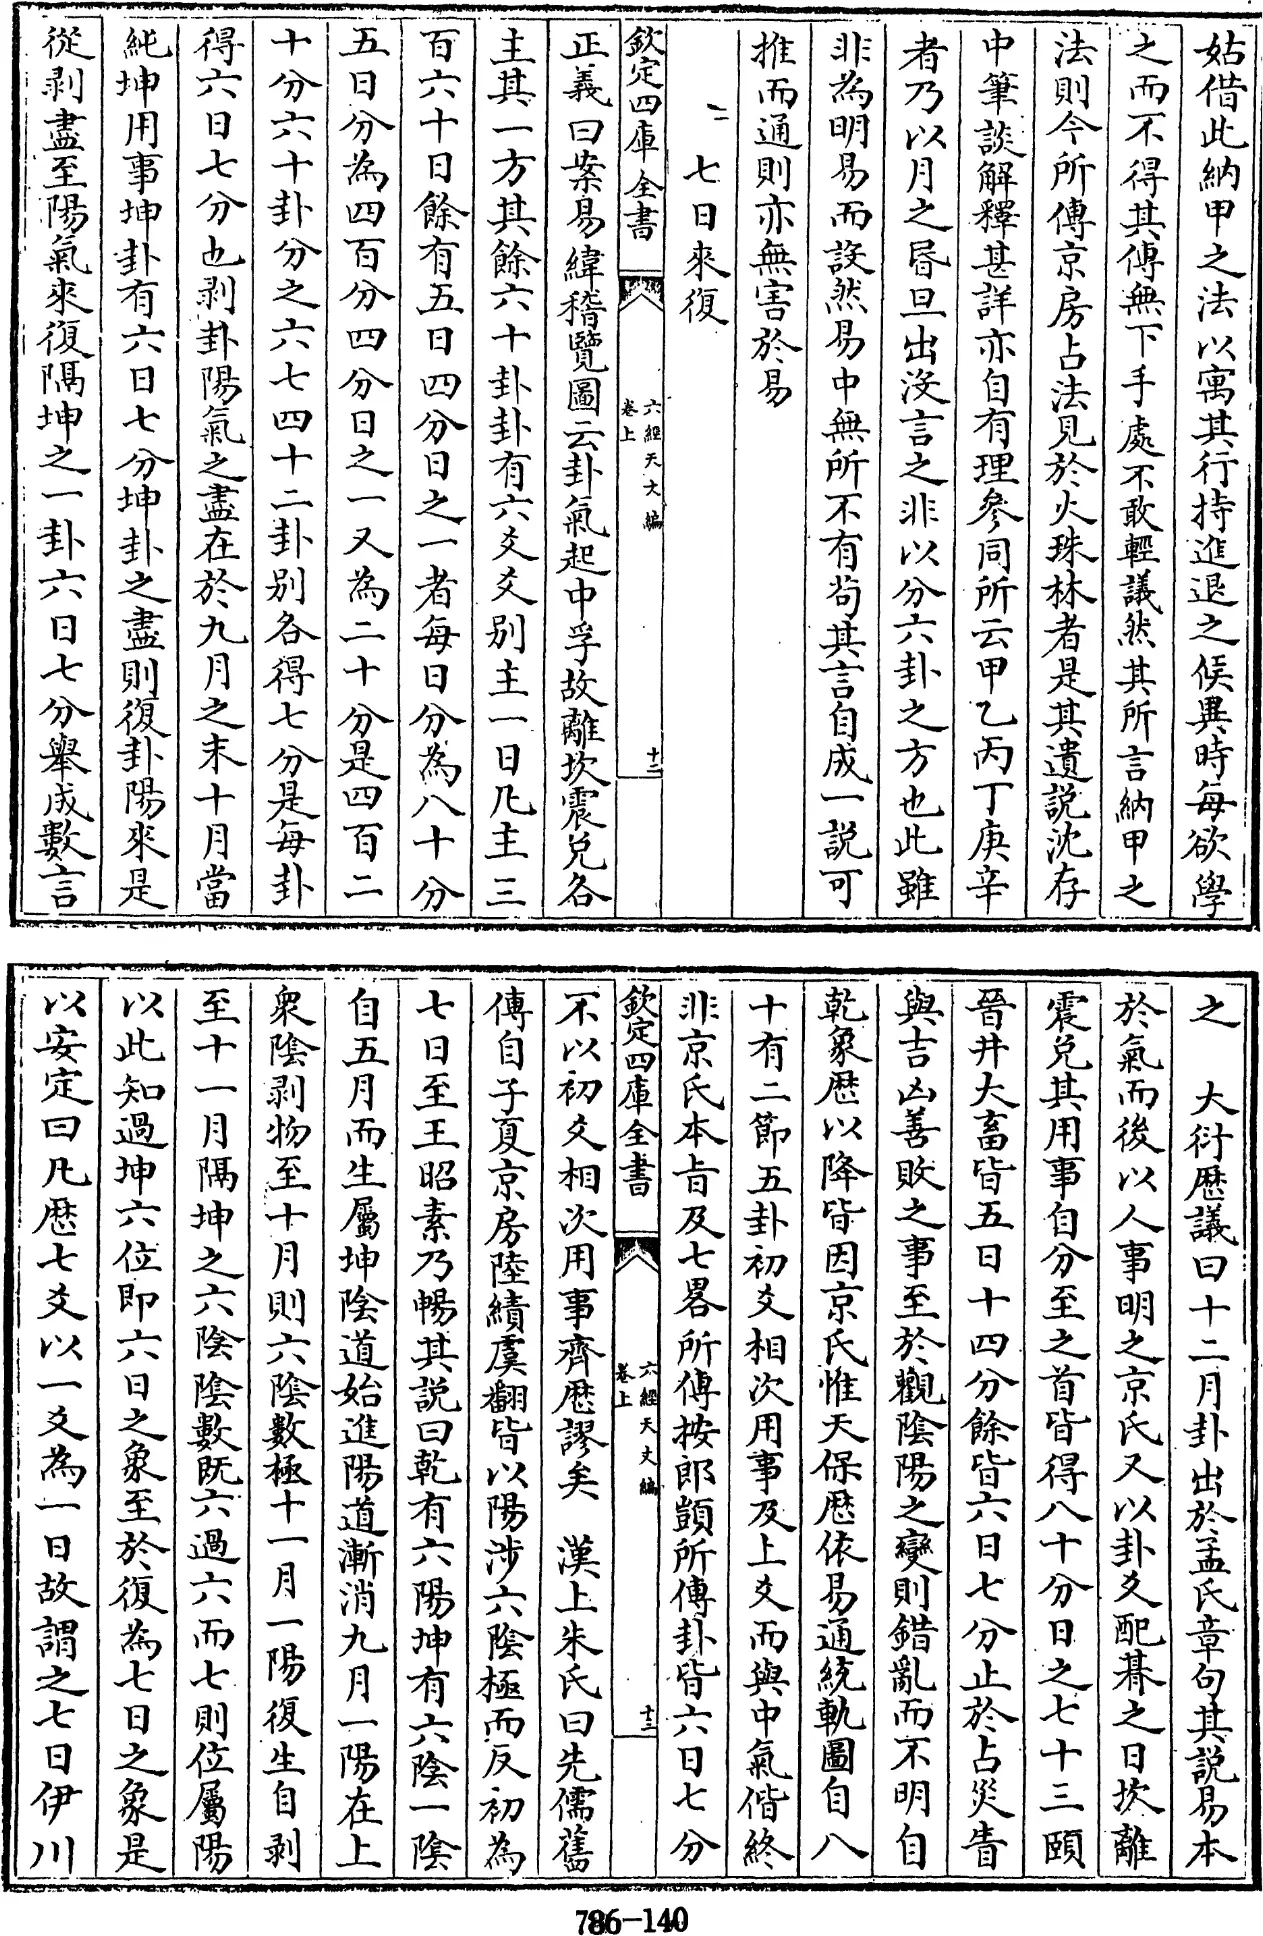 姑借此納甲之法以寓其行持進退之候異時每欲學
之而不得其傳無下手處不敢輕議然其所言納甲之
法則今所傳京房占法見於火珠林者是其遺說沈存
中筆談解釋甚詳亦自有理參同所云甲乙丙丁庚辛
者乃以月之昬旦出沒言之非以分六卦之方也此雖
非為明易而設然易中無所不有苟其言自成一說可
推而通則亦無害於易
七日來復
欽定四庫全書
六經天文編
卷上
十二
正義曰案易緯稽覽圖云卦氣起中孚故離坎震兌各
主其一方其餘六十卦卦有六爻爻別主一日凡主三
百六十日餘有五日四分日之一者每日分為八十分
五日分為四百分四分日之一又為二十分是四百二
十分六十卦分之六七四十二卦別各得七分是每卦
得六日七分也剥卦陽氣之盡在於九月之末十月當
純坤用事坤卦有六日七分坤卦之盡則復卦陽來是
從剥盡至陽氣來復隔坤之一卦六日七分舉成數言
之　大衍厯議曰十二月卦出於孟氏章句其說易本
於氣而後以人事明之京氏又以卦爻配朞之日坎離
震兌其用事自分至之首皆得八十分日之七十三頤
晉井大畜皆五日十四分餘皆六日七分止於占災眚
與吉凶善敗之事至於觀陰陽之變則錯亂而不明自
乾象厯以降皆因京氏惟天保厯依易通統軌圖自八
十有二節五卦初爻相次用事及上爻而與中氣偕終
非京氏本旨及七畧所傳按郎顗所傳卦皆六日七分
欽定四庫全書
六經天文編
卷上
十三
不以初爻相次用事齊厯謬矣　漢上朱氏曰先儒舊
傳自子夏京房陸績虞翻皆以陽涉六陰極而反初為
七日至王昭素乃暢其說曰乾有六陽坤有六陰一陰
自五月而生屬坤陰道始進陽道漸消九月一陽在上
衆陰剥物至十月則六陰數極十一月一陽復生自剥
至十一月隔坤之六陰陰數既六過六而七則位屬陽
以此知過坤六位即六日之象至於復為七日之象是
以安定曰凡厯七爻以一爻為一日故謂之七日伊川
786-140